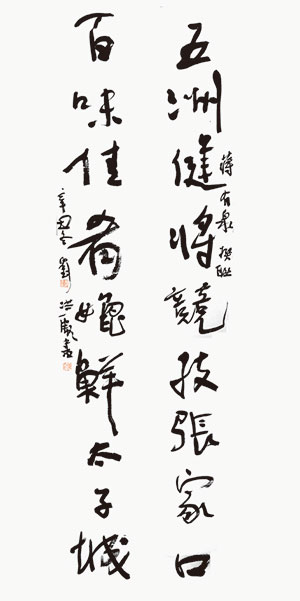 五洲健將競技張家口
蔣有泉撰聯
百味佳肴媲鮮太子城
辛丑冬劉洪彪書